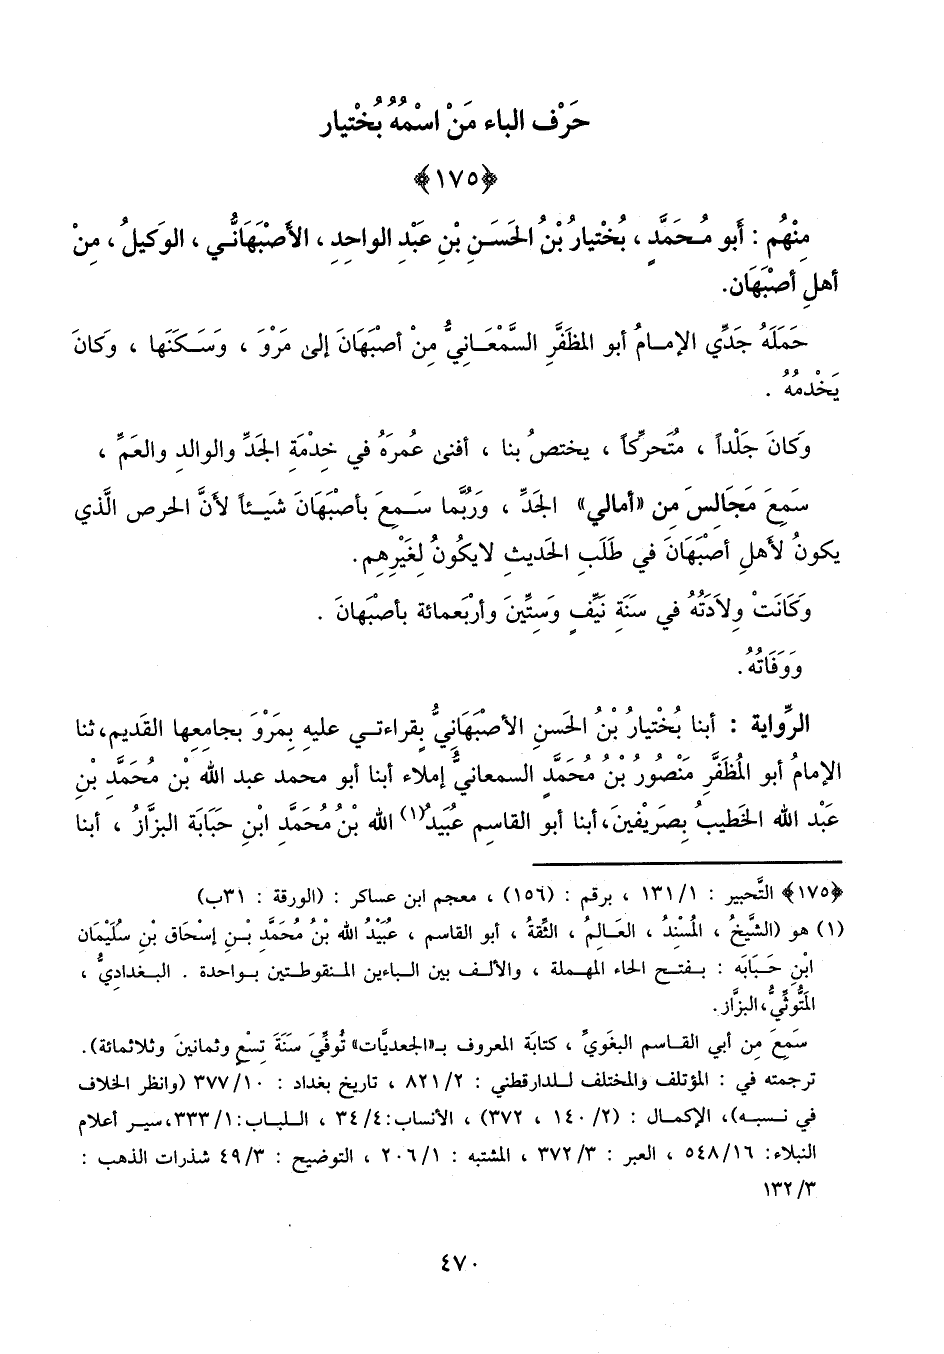 حَرْف الباء مَنْ اسْمُهُ بُخْتيار
﴿١٧٥﴾
مِنْهُم : أَبو مُحَمَّدٍ ، بُخْتيارُ بْنُ الحَسَنِ بْنِ عَبْدِ الواحِدِ ، الأَصْبَهَانُّي ، الوَكيلُ ، مِنْ
أهلِ أصْبَهَان.
حَمَلَهُ جَدِّي الإمامُ أبو المظَفَّرِ السَّمْعَانِيُّ مِنْ أصْبَهَانَ إلى مَرْوَ ، وَسَكَنَها ، وَكانَ
يَخْدمُهُ .
وَكَانَ جَلْداً ، مُتَحرِّكاً ، يختصُ بنا ، أفنى عُمرَهُ في خِدْمَةِ الجَدِّ والوالدِ والعَمِّ ،
سَمِعَ مَجَالِسَ مِن «أمالي» الجَدِّ ، وَرُبَّما سَمِعَ بأصْبَهَانَ شَيئاً لأنَّ الحرص الَّذي
يكونُ لأهلِ أصْبَهَانَ في طَلَبِ الحَديثِ لايكُونُ لِغَيْرِهِم.
وَكَانَتْ وِلاَدَتُهُ في سَنَةِ نَيِّفٍ وَستِّينَ وأرْبَعمائة بأصْبَهانَ .
وَوَفَاتُهُ.
الرِّواية : أبنا بُخْتيارُ بْنُ الحَسنِ الأصْبَهَانِيُّ بِقراءتي عليهِ بِمَرْوَ بجامِعِها القَديم، ثنا
الإمامُ أبو المُظَفَّرِ مَنْصُورُ بْنُ مُحَمَّدٍ السمعانيُّ إملاء أبنا أبو محمد عبد الله بْن مُحَمَّدِ بْنِ
عَبْد الله الخَطيبُ بِصَريْفين، أبنا أبو القاسم عُبَيدُ(١) الله بْنُ مُحَمَّدِ ابْنِ حَبَابَة البَزَّازُ ، أبنا
﴿١٧٥﴾ التَّحبير : ١٣١/١ ، برقم : (١٥٦) ، معجم ابن عساكر : (الورقة : ٣١ب)
(١) هو (الشَّيخُ ، المُسْنِدُ ، العَالِمُ ، الثِّقةُ ، أبو القاسم ، عُبَيْدُ الله بْنُ مُحَمَّدِ بْنِ إسْحَاق بْنِ سُلَيْمَان
ابْنِ حَبَابَه : بفتح الحاء المهملة ، والألف بين الباءين المنقوطتين بواحدة . البغداديُّ ،
المَتُّوثِيُّ، البزَّاز.
سَمِعَ مِن أبي القاسم البغَويِّ ، كتابَهُ المعروف بـ«الجعديَّات» تُوفِّيَ سَنَةَ تِسْعٍ وثمانينَ وثلاثمائة).
ترجمته في : المؤتلف والمختلف للدارقطني : ٨٢١/٢ ، تاريخ بغداد : ٣٧٧/١٠ (وانظر الخلاف
في نسبه)، الإكمال : (١٤٠/٢ ، ٣٧٢) ، الأنساب: ٣٤/٤ ، اللباب: ٣٣٣/١، سير أعلام
النبلاء: ٥٤٨/١٦ ، العبر : ٣٧٢/٣ ، المشتبه : ٢٠٦/١ ، التوضيح : ٤٩/٣ شذرات الذهب :
١٣٢/٣
٤٧٠